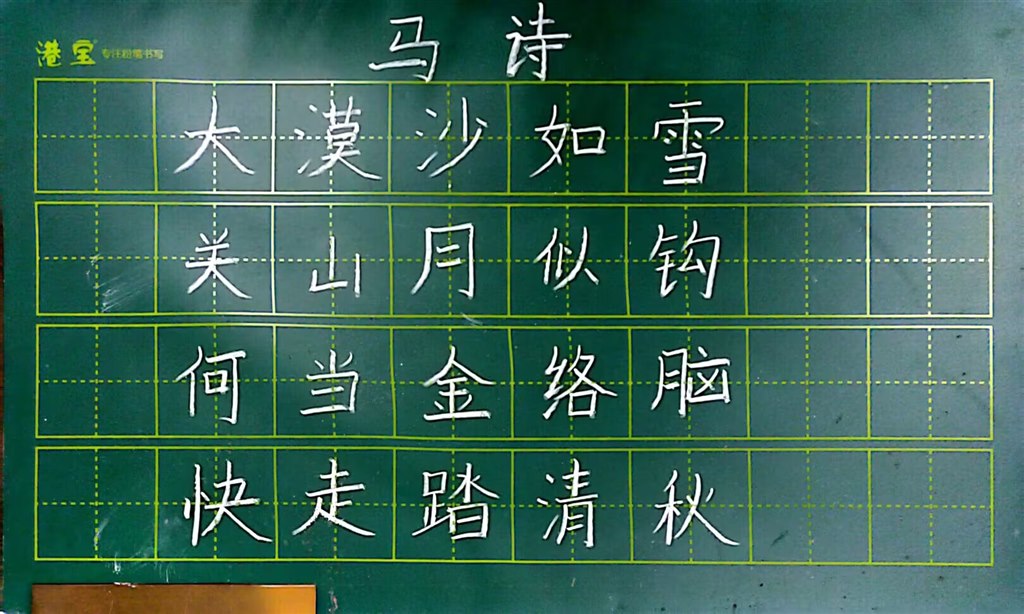 马诗
港宝 专注粉笔书写
大漠沙如雪
关山月似钩
何当金络脑
快走踏清秋